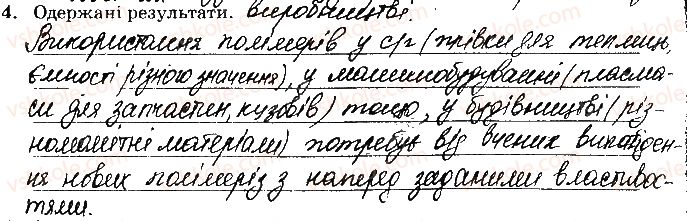 4. Одержані результати. виробництві.
Використання полімерів у с/г (плівки для теплиць,
ємності різного значення), у машинобудуванні (пластма-
си для запчастин, кузовів) тощо, у будівництві (різ-
номанітні матеріали) потребує від вчених винайден-
ня нових полімерів з наперед заданими властивос-
тями.